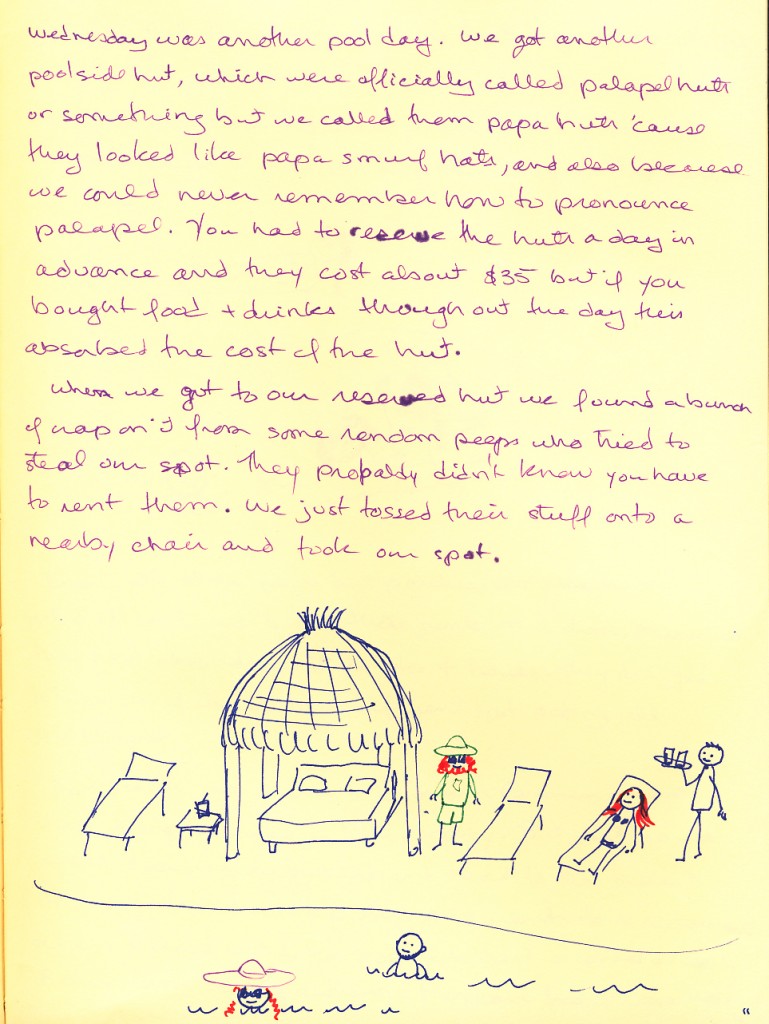 Wednesday was another pool day. We got another
poolside hut, which were officially called palapel huts
or something but we called them papa huts 'cause
they looked like papa smurf hats, and also because
we could never remember how to pronounce
palapel. You had to reserve the huts a day in
advance and they cost about $35 but if you
bought food + drinks though out the day this
absorbed the cost of the hut.
When we got to our reserved hut we found a bunch
of crap on it from some random peeps who tried to
steal our spot. They probably didn't know you have
to rent them. We just tossed their stuff onto a
nearby chair and took our spot.